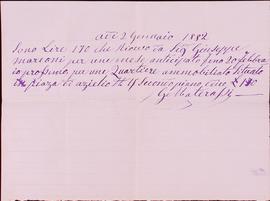 2 Gennaio 1882
Sono Lire 170 che ricevo da Sig Giuseppe
Marconi per un mese anticipato fino 20 febbra
io prossimo per un Quartiere ammobiliato situato
in piazza di azielio № 15 secondo piano dico £ 170